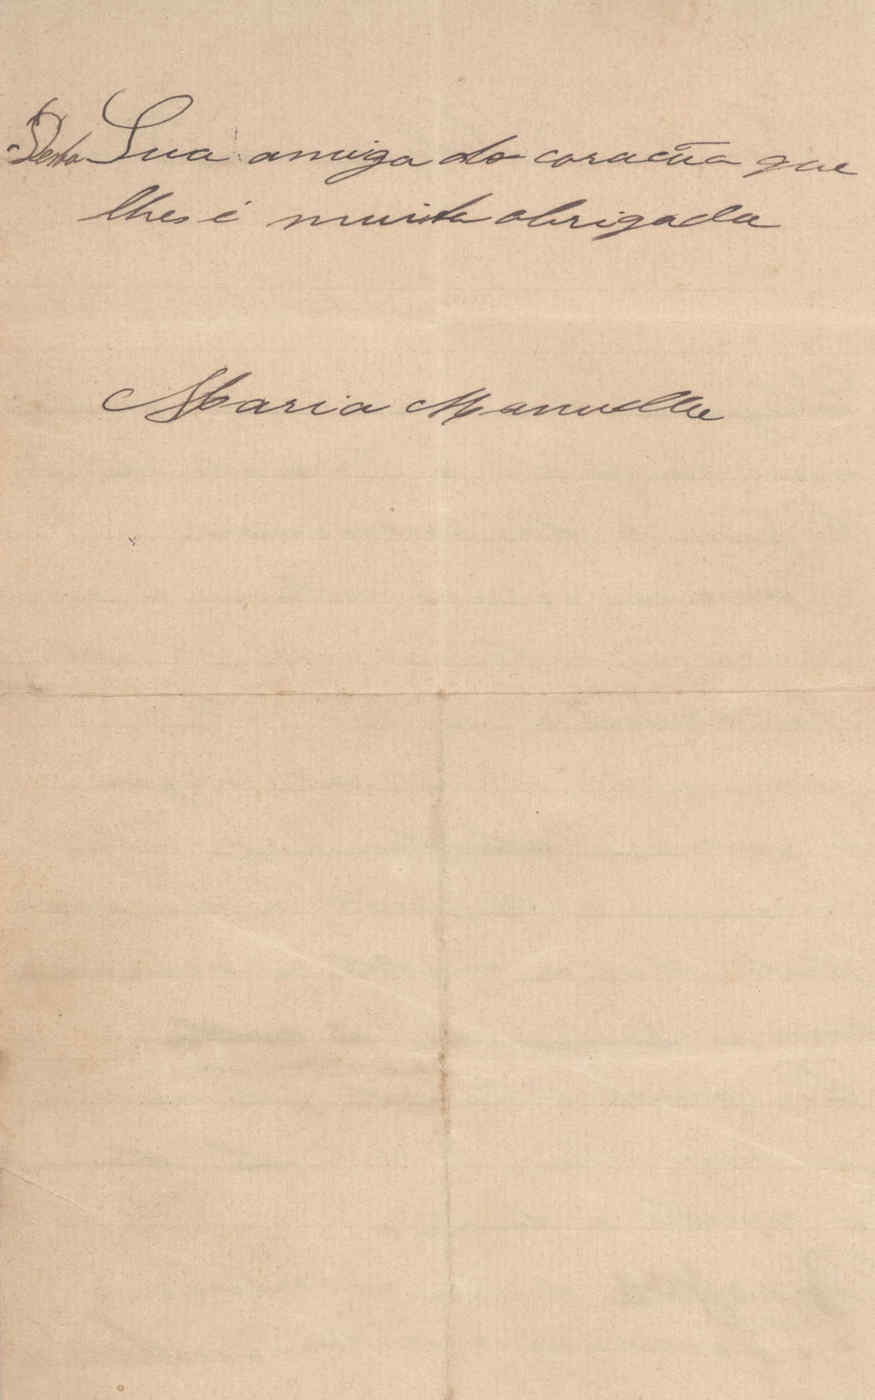 Desta Sua amiga do coracão que
lhes é muito obrigada
Maria Manuella